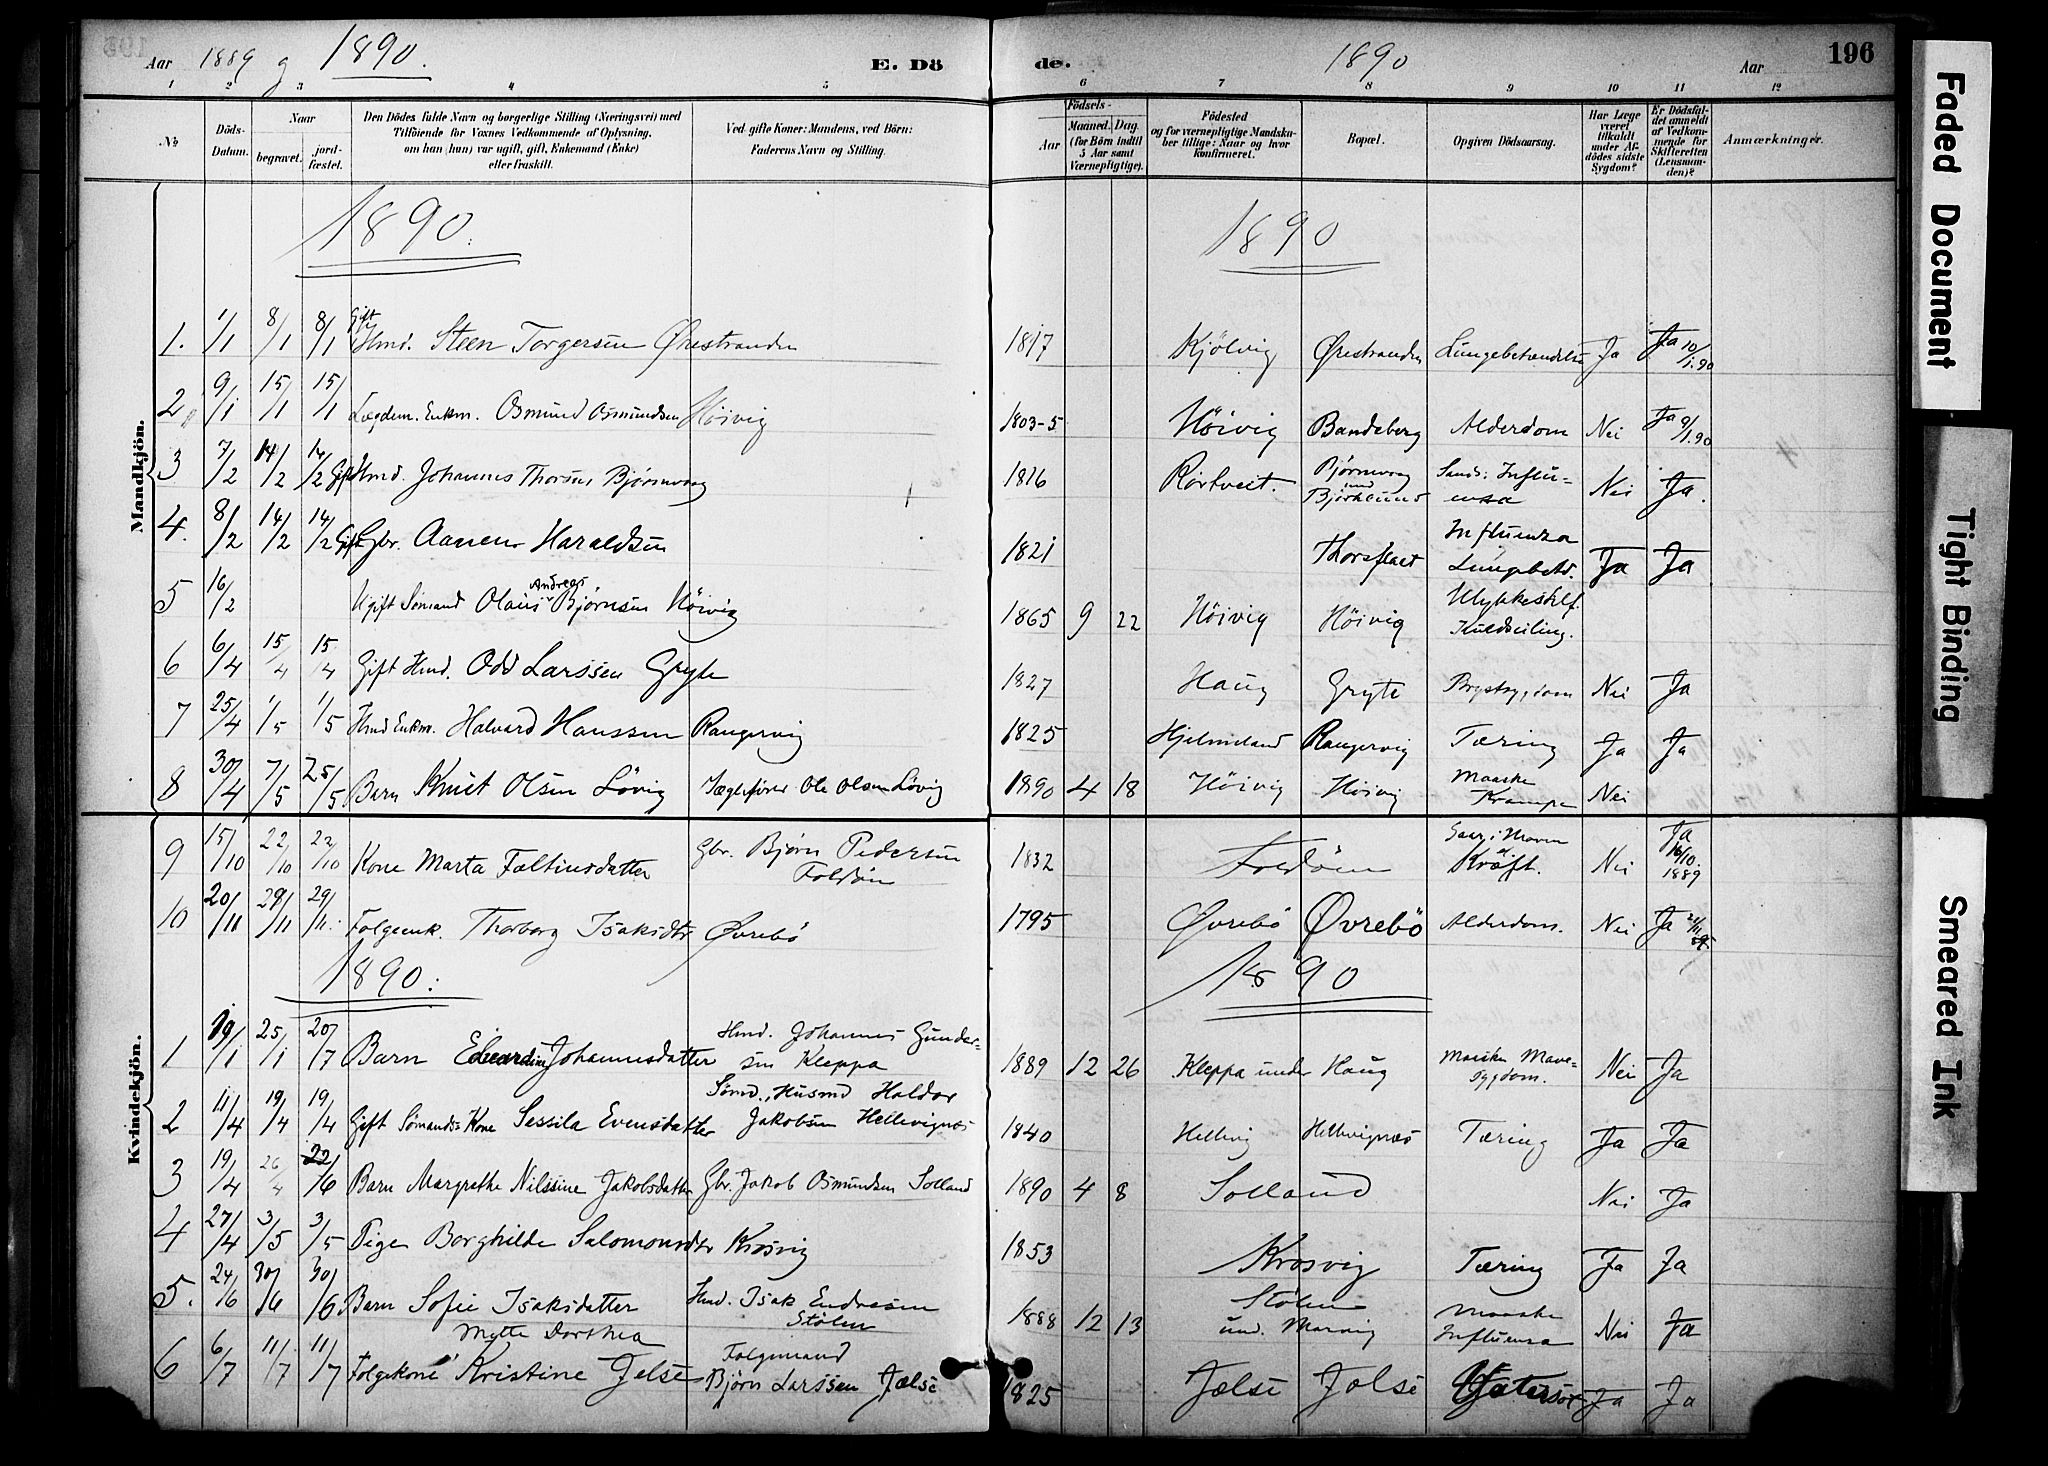 Aar 1889 og 1890. E. Dö de. 1890 Aar 196
1 2 3 4 5 6 7 8 9 10 11 12
No Döds-Datum. Naar begravet. jord-fæstet. Den Dödes fulde Navn og borgerlige Stilling (Næringsvei) med Tilföiende for Voxnes Vedkommende af Oplysning, om han (hun) var ugift, gift, Enkemand (Enke) eller fraskilt. Ved gifte Koner: Mandens, ved Börn: Faderens Navn og Stilling. Födsels- Aar Maaned. Dag. (for Börn indtil 5 Aar samt Værnepligtige). Födested og for værnepligtige Mandskaber tillige: Naar og hvor konfirmeret. Bopæl. Opgiven Dödsaarsag. Har Læge været tilkaldt under Afdödes sidste Sygdom? Er Dödsfaldet anmeldt af Vedkommende for Skifteretten (Lensmanden)? Anmærkninger.
Mandkjön.
1890. 1890
1. 1/1 8/1 8/1 Gift Hmd. Steen Torgersen Ørestranden 1817 Kjölvig Ørestranden Lungebetændelse Ja Ja 10/1.90
2 9/1 15/1 15/1 Lægdem. Enkm. Osmund Osmundsen Höivig 1803-5 Höivig Bandeberg Alderdom Nei Ja 9/1.90
3 7/2 14/2 14/2 Gift Hmd. Johannes Thorsen Bjørnevaag 1816 Rörtveit. Bjørnevaag Sands: Influenza Nei Ja.
4. 8/2 14/2 14/2 Gift Gbr. Aanen Haraldsen 1821 Influenza Lungebetd. Ja Ja
5 16/2 Ugift Sømand Olaus Andreas Bjørnsen Höivig 1865 9 22 Höivig Höivig Kuldseiling.
6 6/4 15/4 15/4 Gift Hmd. Odd Larssen Gryte 1827 Haug Gryte Brystsygdom Nei Ja
7 25/4 1/5 1/5 Hmd Enkm. Halvard Hanssen Rangervig 1825 Hjelmeland Rangervig Tæring Ja Ja
8 30/4 7/5 25/5 Barn Knut Olsen Lövig Ole Olsen Lövig 1890 4 18 Höivig Höivig Maaske Krampe Nei
Kvindekjön.
9 15/10 22/10 22/10 Kone Marta Faltinsdatter Gbr. Bjørn Pedersen Foldöen 1832 Foldöen Saar i Maven Kræft. Nei Ja 16/10. 1889
10 20/11 29/11 29/11. Folgeenk. Thorborg Isaksdtr Øvrebö 1795 Øvrebö Øvrebö Alderdom. Nei Ja
1890. 1890
1 19/1 25/1 20/7 Barn Johannesdatter Hmd. Johannes Gundersen Kleppa 1889 12 26 Kleppa under Haug Maaske Mavesygdom. Nei Ja
2 11/4 19/4 19/4 Gift Sømands Kone Sessila Evensdatter Sømd., Husmd Haldor Jakobsen Hellevignæs 1840 Hellvig Hellevignæs Tæring Ja Ja
3 19/4 26/4 22/6 Barn Margrethe Nilssine Jakobsdatter Gbr. Jakob Osmundsen Solland 1890 4 8 Solland Nei Ja
4 27/4 3/5 3/5 Pige Borghilde Salomonsdtr Krosvig 1853 Krosvig Tæring Ja Ja
5. 24/6 30/6 30/6 Barn Sofie Isaksdatter Hmd. Isak Endresen Stölen 1888 12 13 Stölen und. Marvig Maaske Influenza Nei Ja
6 6/7 11/7 11/7 Folgekone Mette Dorthea Kristine Jelse Folgemand Bjørn Larssen Jælse 1825 Jælse Jalse Ja Ja
Faded Document
Tight Binding
Smeared Ink